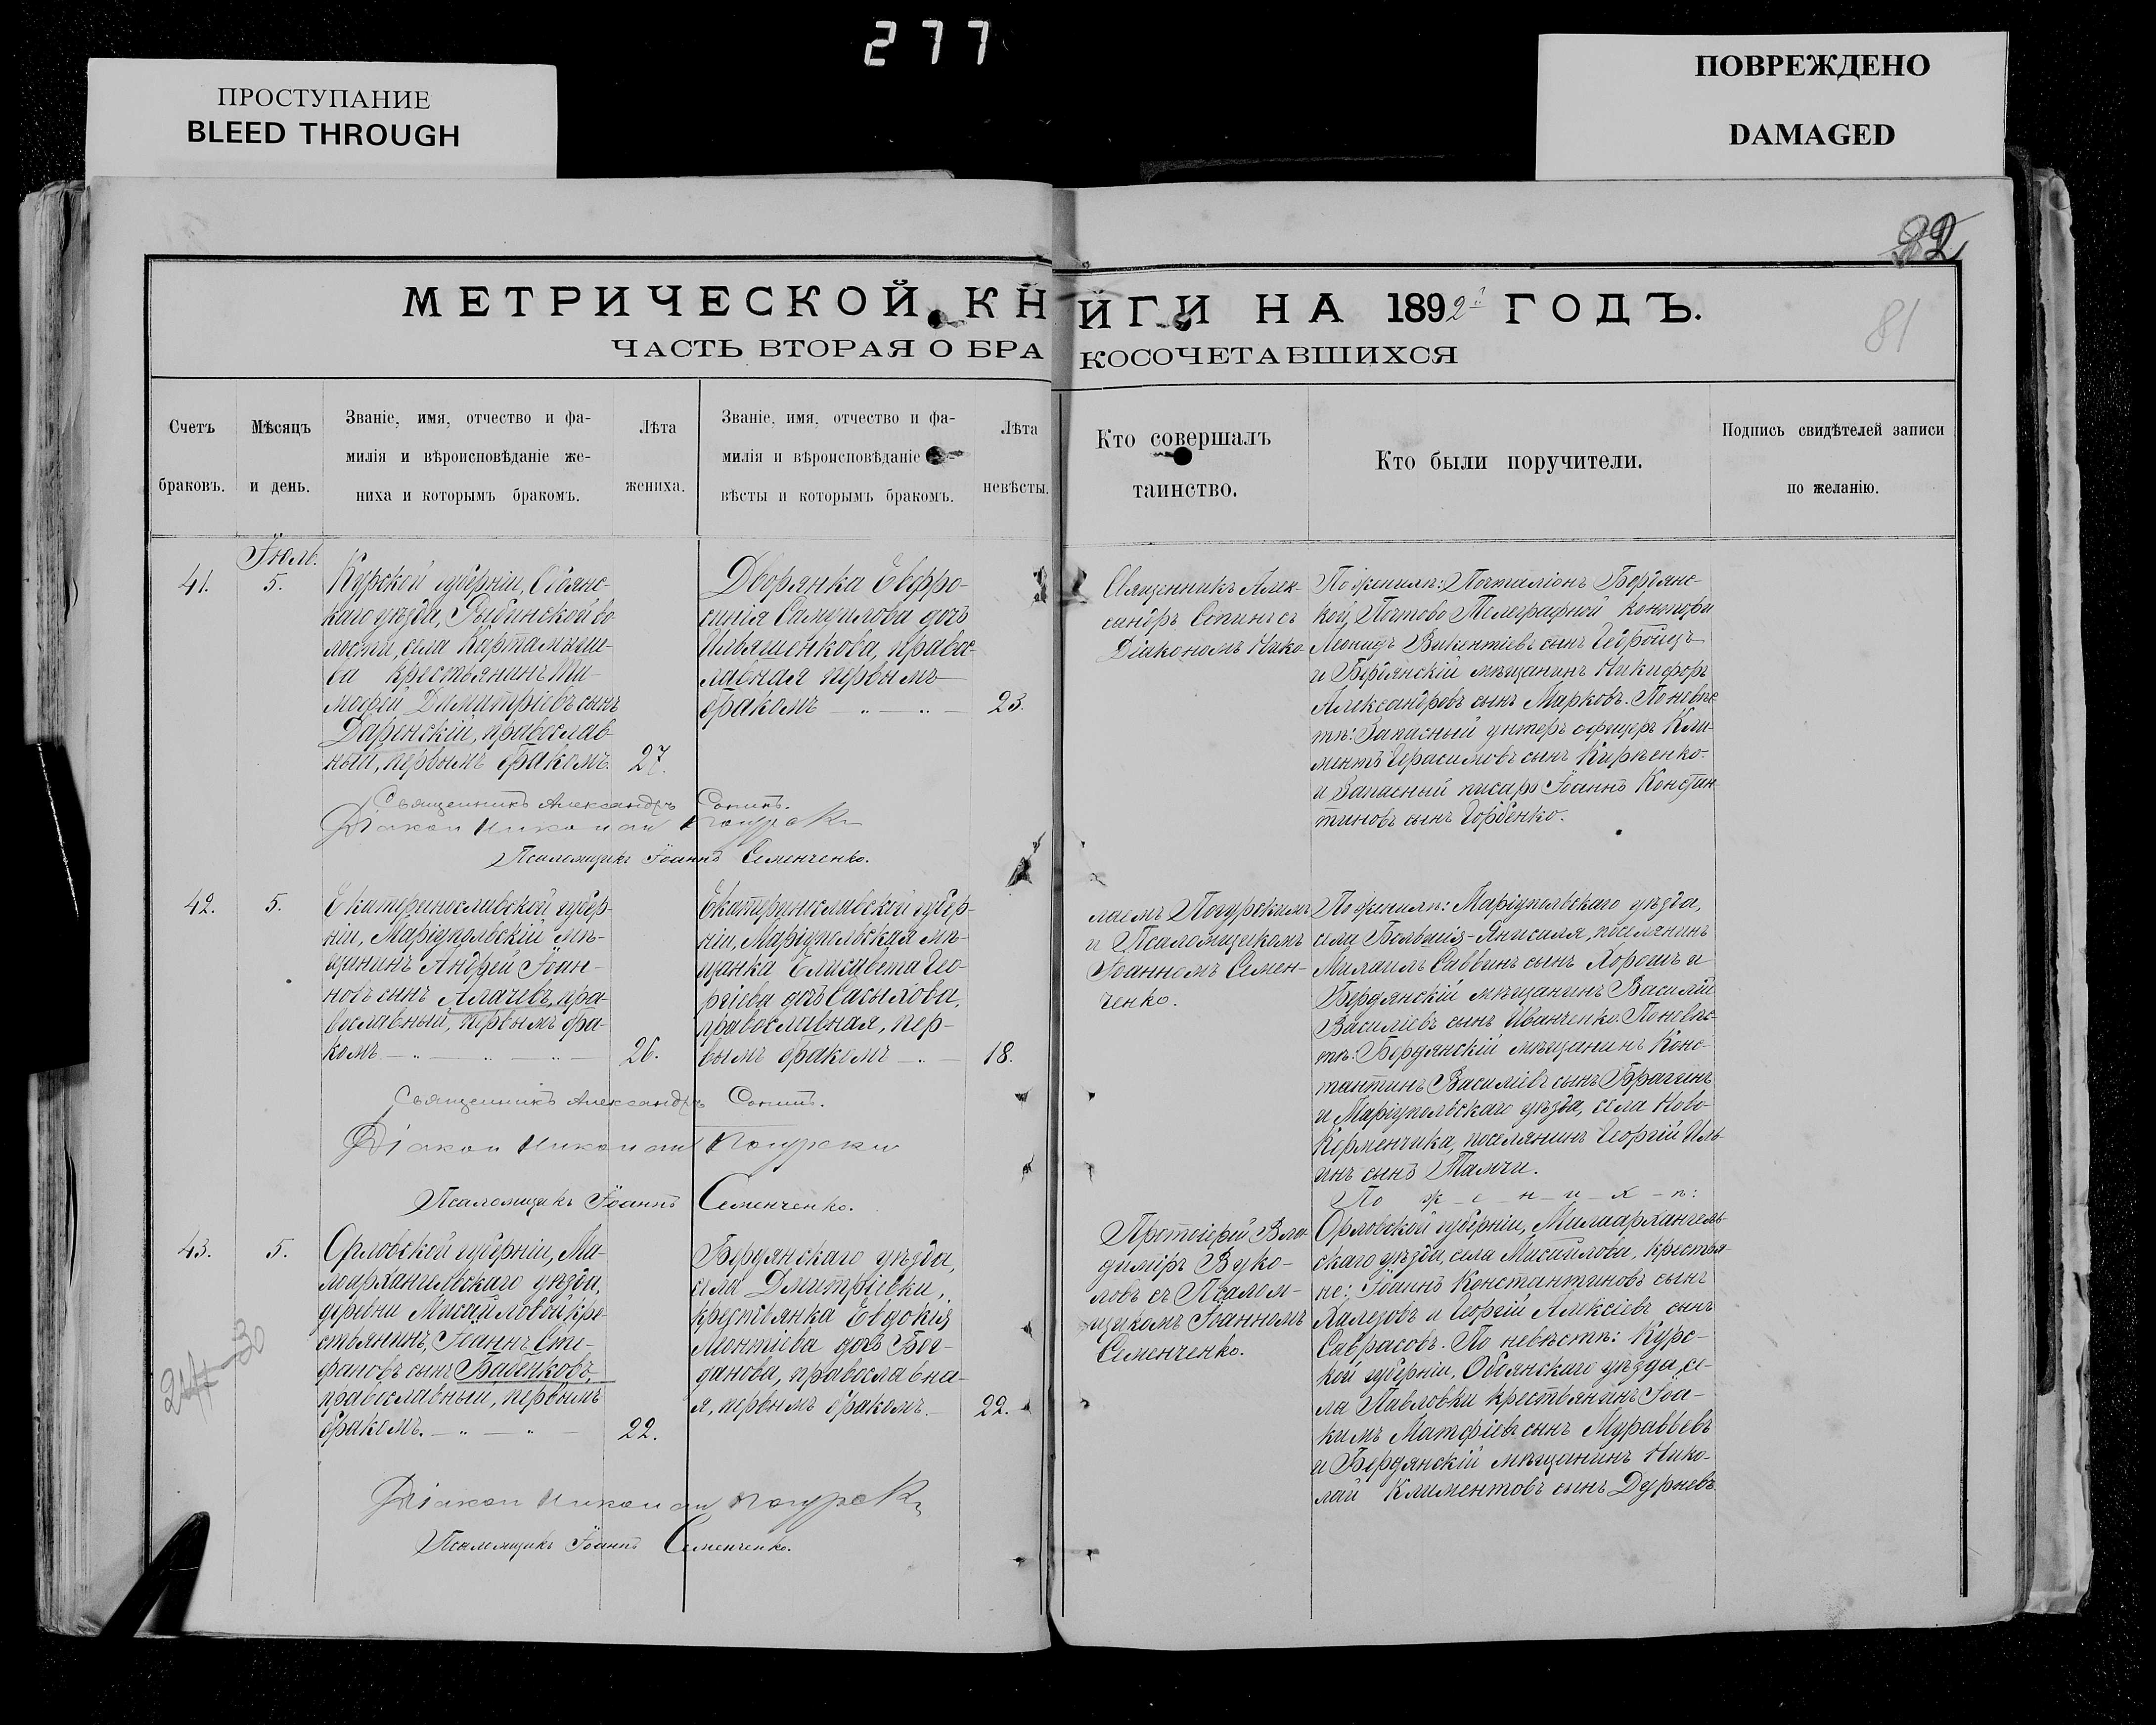 277
ПРОСТУПАНИЕ
BLEED THROUGH
ПОВРЕЖДЕНО
DAMAGED
22
81
МЕТРИЧЕСКОЙ КН ИГИ НА 1892й ГОДЪ.
ЧАСТЬ ВТОРАЯ О БРА КОСОЧЕТАВШИХСЯ
Счетъ
браковъ.
Мѣсяцъ
и день.
Званіе, имя, отчество и фа-
милія и вѣроисповѣданіе же-
ниха и которымъ бракомъ.
Лѣта
жениха.
Званіе, имя, отчество и фа-
милія и вѣроисповѣданіе
вѣсты и которымъ бракомъ.
Лѣта
невѣсты.
Кто совершалъ
таинство.
Кто были поручители.
Подпись свидѣтелей записи
по желанію.
Іюль.
41.
5.
Курской губерніи, Обоянс-
каго уѣзда, Рыбинской во
лости, села Картамыше-
ва крестьянинъ Ти-
мофей Димитріевъ сынъ
Даренскій, православ
ный, первымъ бракомъ.
27.
Дворянка Евфро-
синія Самуилова дочь
Ивашенкова, правос-
лавная первымъ
бракомъ
23.
Священникъ Алек-
сандръ Сопинъ съ
Діакономъ Нико
По женихѣ: Почталіонъ Бердянс-
кой, Почтово Телеграфной конторы
Леонидъ Викентіевъ сынъ
и Бердянскій мѣщанинъ Никифоръ
Александровъ сынъ Марковъ. По невѣс
тѣ: Запасный унтеръ офицеръ Кли-
ментъ Герасимовъ сынъ Кирѣенко
и Запасный писарь Іоаннъ Констан
тиновъ сынъ Горбенко.
Священникъ Александръ Сопинъ.
Діакон Николай Погурски
Псаломщикъ Іоаннъ Семенченко.
42.
5.
Екатеринославской губер-
ніи, Маріупольскій мѣ-
щанинъ Андрей Іоан-
новъ сынъ Алачевъ, пра-
вославный, первымъ бра-
комъ
26.
Екатеринославской губер-
ніи, Маріупольская мѣ-
щанка Елисавета Гео-
ргіева дочь Сасыхова,
православная, пер-
вымъ бракомъ
18.
лаемъ Погурскимъ
и Псаломщикомъ
Іоанномъ Семен-
ченко.
По женихѣ: Маріупольскаго уѣзда,
села Большія-Янисаля, поселянинъ
Михаилъ Саввинъ сынъ Хорошъ и
Бердянскій мѣщанинъ Василій
Василіевъ сынъ Иванченко. По невѣс-
тѣ: Бердянскій мѣщанинъ Конс-
тантинъ Василіевъ сынъ Брагинъ
и Маріупольскаго уѣзда, села Ново-
Керменчика, поселянинъ Георгій Иль-
инъ сынъ Тамчи.
Священникъ Александръ Сопинъ.
Діакон Николай Погурски
Псаломщикъ Іоаннъ Семенченко.
43.
5.
Орловской губерніи, Ма-
лоархангельскаго уѣзда,
деревни Мисайловой кре-
стьянинъ, Іоаннъ Сте-
фановъ сынъ Бабенковъ,
православный, первымъ
бракомъ.
22.
Бердянскаго уѣзда,
села Дмитріевки,
крестьянка Евдокія
Леонтіева дочь Бог-
данова, православна-
я, первымъ бракомъ.
22.
Протоіерей Вла-
диміръ Вуко-
ловъ съ Псалом-
щикомъ Іоанномъ
Семенченко.
По ж-е-н-и-х-ѣ:
Орловской губерніи, Малоархангель-
скаго уѣзда, села Мисайлова, крестья-
не: Іоаннъ Константиновъ сынъ
Халезовъ и Георгій Алексіевъ сынъ
Саврасовъ. По невѣстѣ: Курс-
кой губерніи, Обоянскаго уѣзда, се-
ла Павловки крестьянинъ Іоа-
кимъ Матфіевъ сынъ Муравьевъ
и Бердянскій мѣщанинъ Нико-
лай Климентовъ сынъ Дурневъ.
Діакон Николай Погурски
Псаломщикъ Іоаннъ Семенченко.